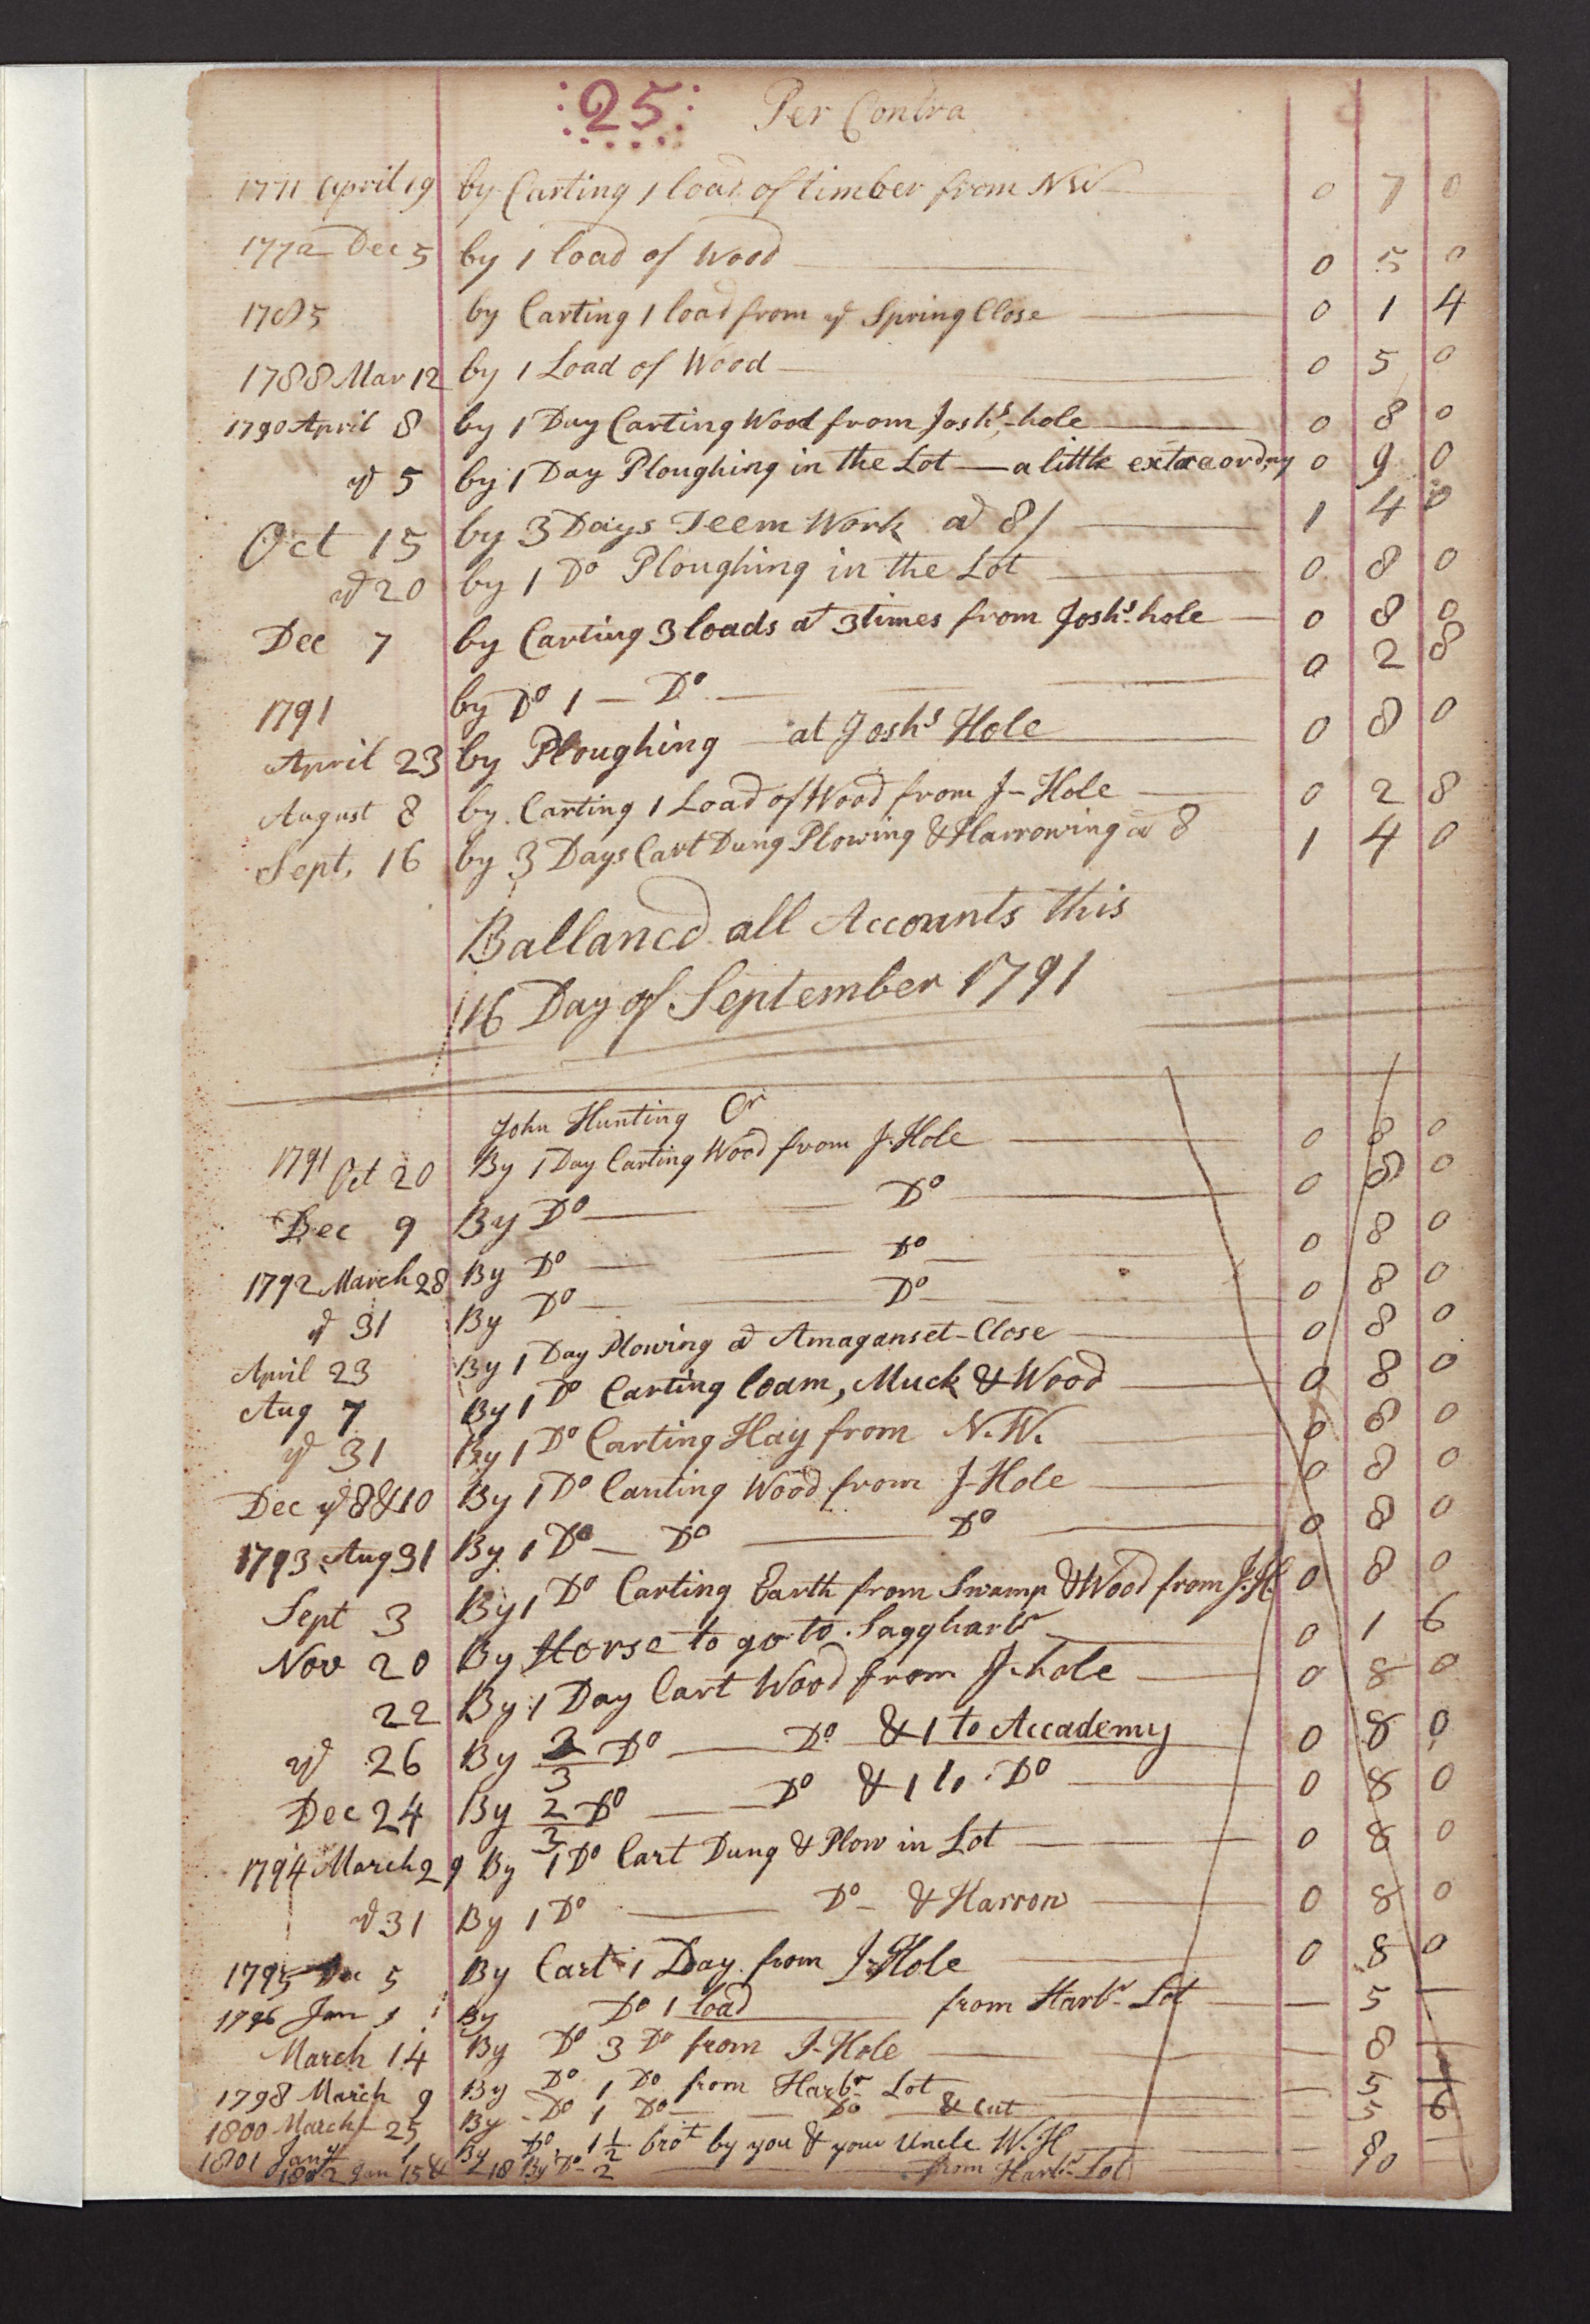 25 Per Contra
1771 April 19 by Carting 1 load of timber from NW 0 7 0
1772 Dec 5 by 1 load of Wood 0 5 0
1785 by Carting 1 load from yᵉ Spring Close 0 1 4
1788 Mar 12 by 1 Load of Wood 0 5 0
1790 April 8 by 1 Day Carting Wood from Joshˢ-hole 0 8 0
yᵉ 5 by 1 Day Ploughing in the Lot — a little extraordny 0 9 0
Oct 15 by 3 Days Teem Work a 8/ 1 4 0
yᵉ 20 by 1 Dº Ploughing in the Lot 0 8 0
Dec 7 by Carting 3 loads at 3 times from Joshˢ hole 0 8 0
by Dº 1 — Dº 0 2 8
1791
April 23 by Ploughing at Joshˢ Hole 0 8 0
August 8 by Carting 1 Load of Wood from J-Hole 0 2 8
Sept, 16 by 3 Days Cart Dung Plowing & Harrowing a 8 1 4 0
Ballancd all Accounts this
16 Day of September 1791
John Hunting Cr
1791 Oct 20 By 1 Day Carting Wood from J-Hole 0 8 0
Dec 9 By Dº — Dº 0 8 0
1792 March 28 By Dº — Dº 0 8 0
yᵉ 31 By Dº — Dº 0 8 0
April 23 By 1 Day Plowing a Amaganset-Close 0 8 0
Aug 7 By 1 Dº Carting loam, Muck & Wood 0 8 0
yᵉ 31 By 1 Dº Carting Hay from N.W. 0 8 0
Dec yᵉ 8 & 10 By 1 Dº Carting Wood from J-Hole 0 8 0
1793 Aug 31 By 1 Dº — Dº — Dº 0 8 0
Sept 3 By 1 Dº Carting Earth from Swamp & Wood from J.H. 0 8 0
Nov 20 By Horse to go to Saggharbʳ 0 1 6
22 By 1 Day Cart Wood from J-hole 0 8 0
yᵉ 26 By 2/3 Dº — Dº & 1 to Accademy 0 8 0
Dec 24 By 2/3 Dº — Dº & 1 to Dº 0 8 0
1794 March 29 By 1 Dº Cart Dung & Plow in Lot 0 8 0
yᵉ 31 By 1 Dº — Dº — & Harrow 0 8 0
1795 Dec 5 By Cart 1 Day from J-Hole 0 8 0
1796 Jan 1 By Dº 1 load from Harbʳ Lot — 5 —
March 14 By Dº 3 Dº from J-Hole — 8 —
1798 March 9 By Dº 1 Dº from Harbʳ Lot — 5
1800 March 25 By Dº 1 Dº — Dº & cut — 5 6
1801 Jany 1 By Dº 1½ broᵗ by you & your Uncle W. H — 8 —
1802 Jan 15 & 18 By Dº 2 from Harbʳ Lot 10